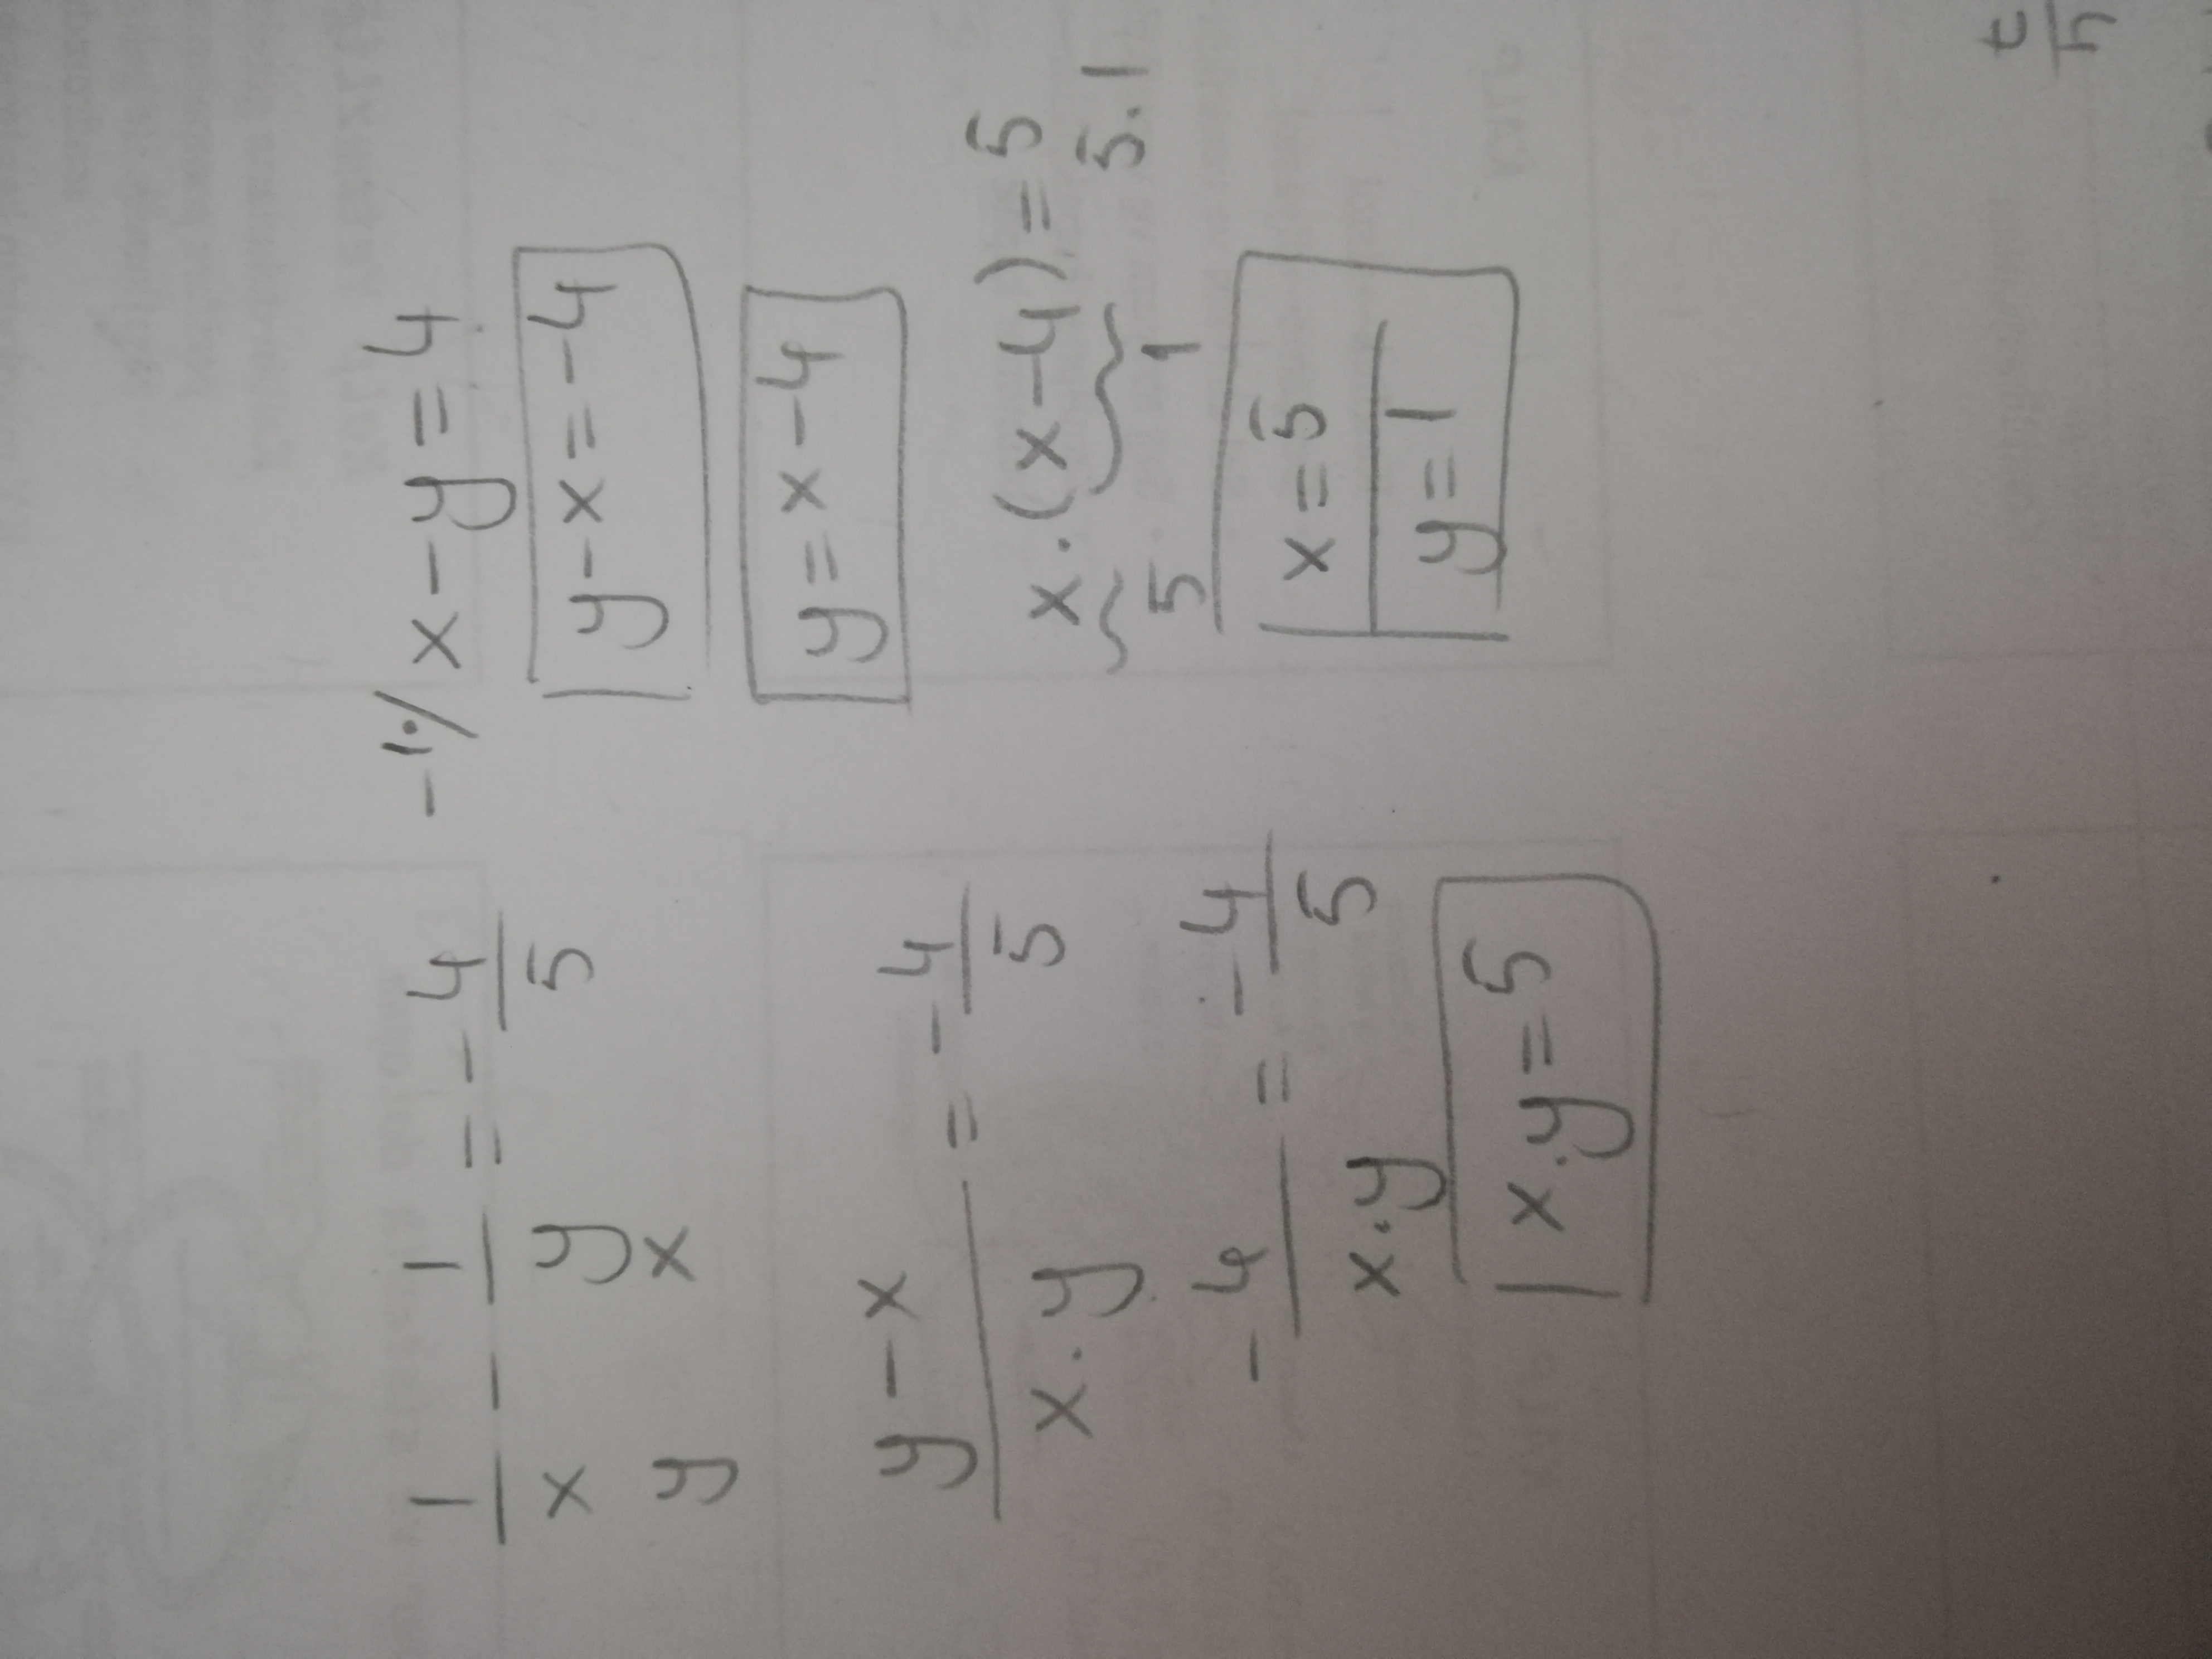 1/x - 1/y = -4/5
y x
(y-x)/(x·y) = -4/5
-4/(x·y) = -4/5
x·y=5
-1·/ x-y=4
y-x=-4
y=x-4
x·(x-4)=5
5 1 5·1
x=5
y=1